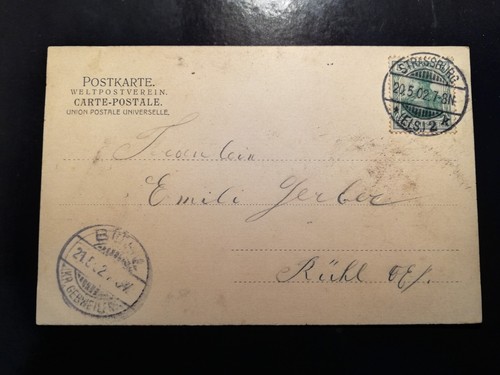 POSTKARTE.
WELTPOSTVEREIN.
CARTE-POSTALE.
UNION POSTALE UNIVERSELLE.
STRASSBURG
20.5.02.7-8N.
*(ELS.) 2 *
Fräulein
Emili Gerber
Bühl
21.5.02